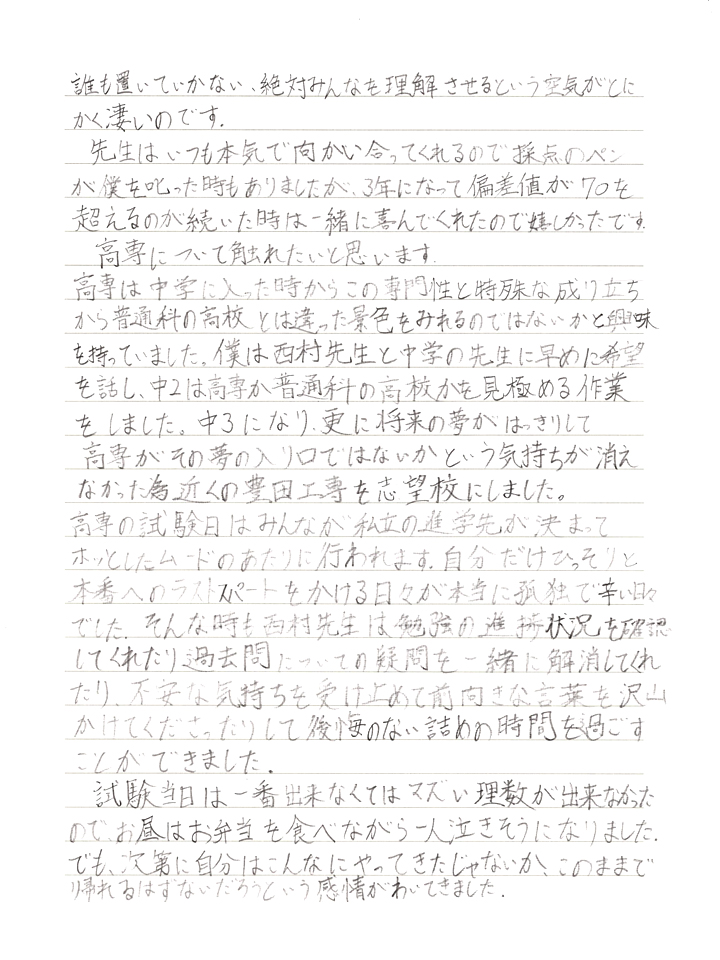 誰も置いていかない、絶対みんなを理解させるという空気がとに
かく凄いのです.
先生はいつも本気で向かい合ってくれるので採点のペン
が僕を叱った時もありましたが、3年になって偏差値が70を
超えるのが続いた時は一緒に喜んでくれたので嬉しかったです.
高専について触れたいと思います.
高専は中学に入った時からこの専門性と特殊な成り立ち
から普通科の高校とは違った景色をみれるのではないかと興味
を持っていました。僕は西村先生と中学の先生に早めに希望
を話し、中2は高専か普通科の高校かを見極める作業
をしました。中3になり、更に将来の夢がはっきりして
高専がその夢の入り口ではないかという気持ちが消え
なかった為近くの豊田工専を志望校にしました。
高専の試験日はみんなが私立の進学先が決まって
ホッとしたムードのあたりに行われます.自分だけひっそりと
本番へのラストスパートをかける日々が本当に孤独で辛い日々
でした.そんな時も西村先生は勉強の進捗状況を確認
してくれたり過去問についての疑問を一緒に解消してくれ
たり、不安な気持ちを受け止めて前向きな言葉を沢山
かけてくださったりして後悔のない詰めの時間を過ごす
ことができました.
試験当日は一番出来なくてはマズい理数が出来なかった
ので、お昼はお弁当を食べながら一人泣きそうになりました.
でも、次第に自分はこんなにやってきたじゃないか、このままで
帰れるはずないだろうという感情がわいてきました.